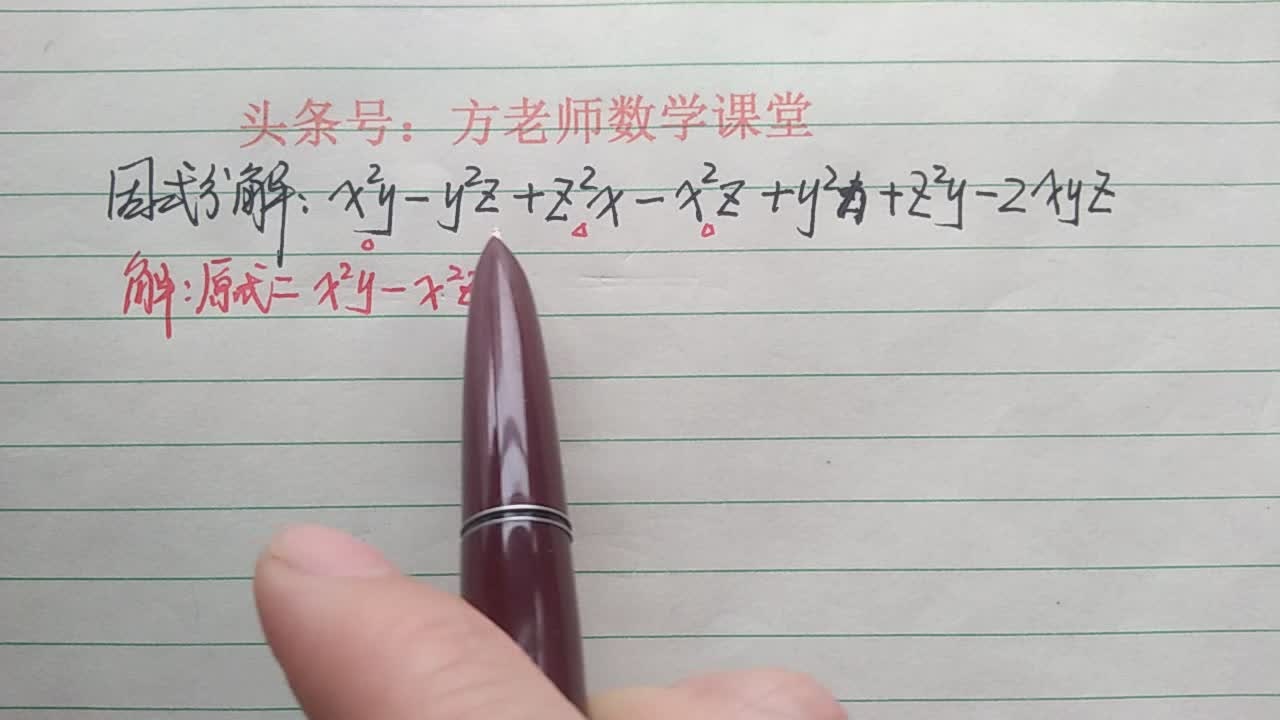 头条号：方老师数学课堂
因式分解：x²y-y²z+z²x-x²z+y²x+z²y-2xyz
解：原式=x²y-x²z